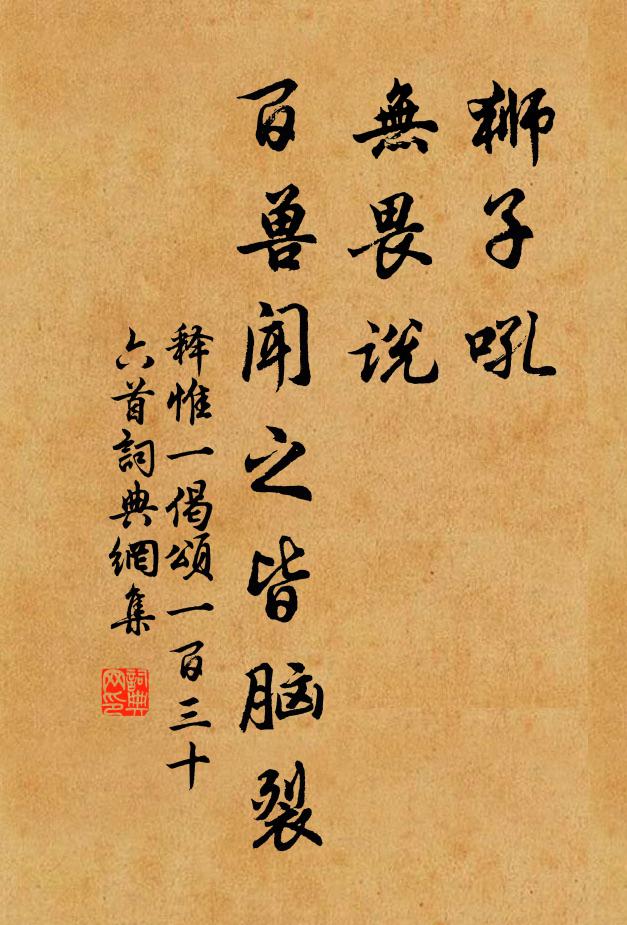 獅子吼
無畏説
百兽闻之皆脑裂
释惟一偈頌一百三十
六首詞典網集
詞典
网印